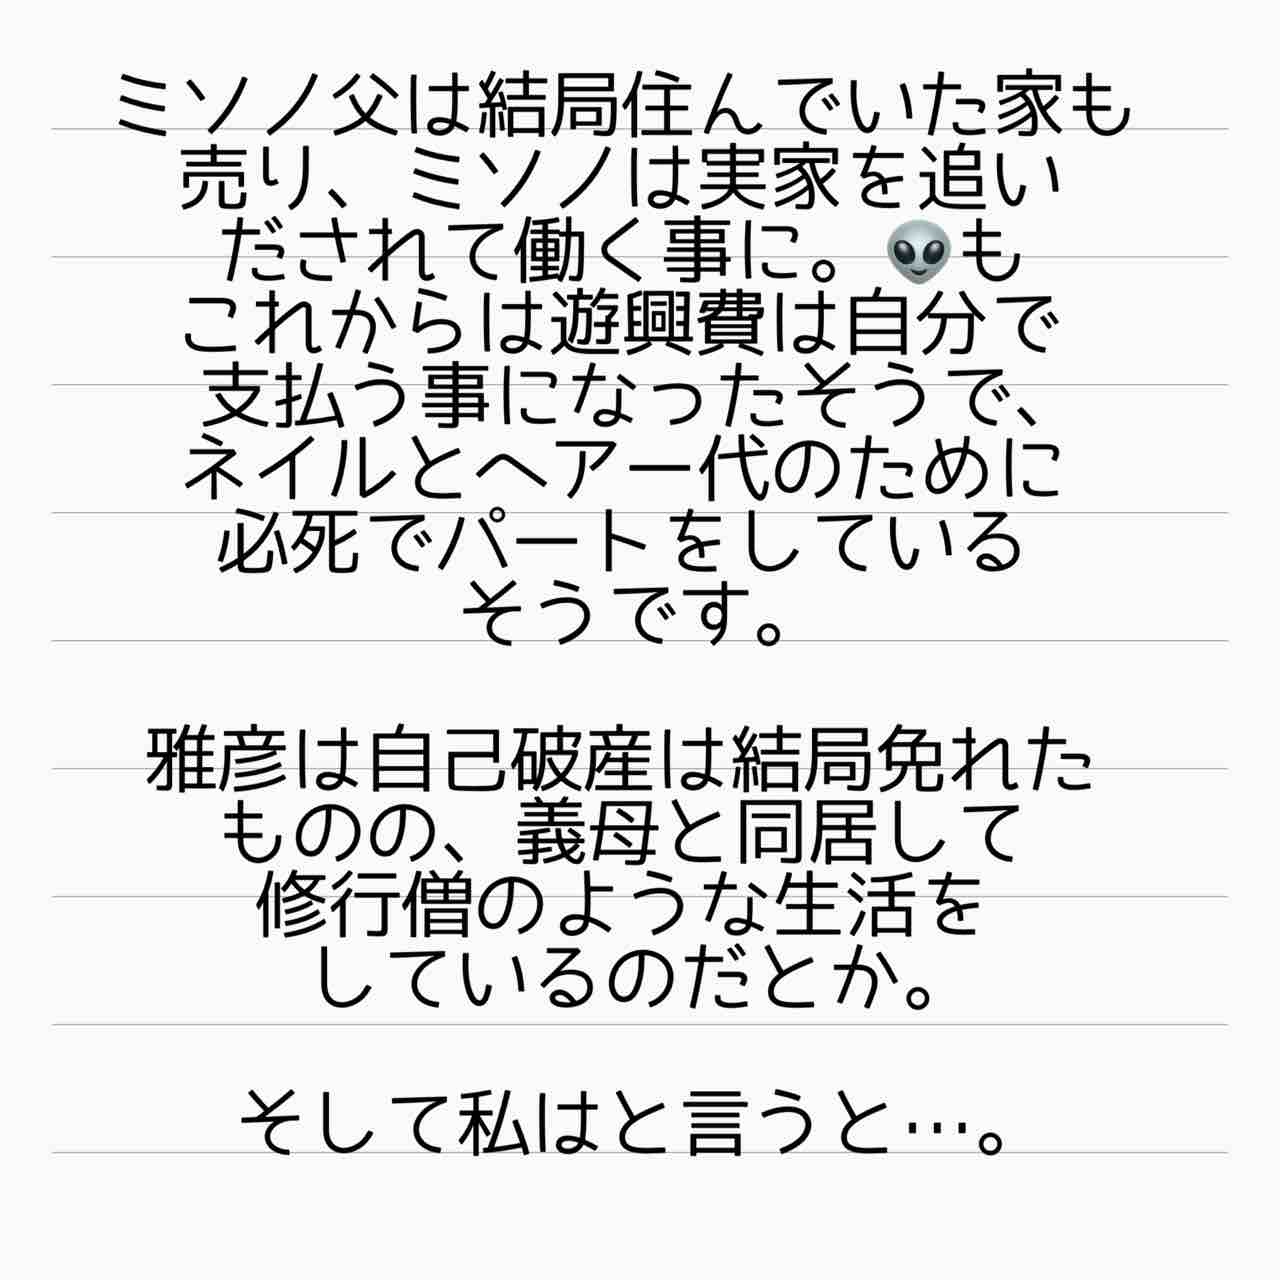 ミソノ父は結局住んでいた家も
売り、ミソノは実家を追い
だされて働く事に。👽も
これからは遊興費は自分で
支払う事になったそうで、
ネイルとヘアー代のために
必死でパートをしている
そうです。
雅彦は自己破産は結局免れた
ものの、義母と同居して
修行僧のような生活を
しているのだとか。
そして私はと言うと…。